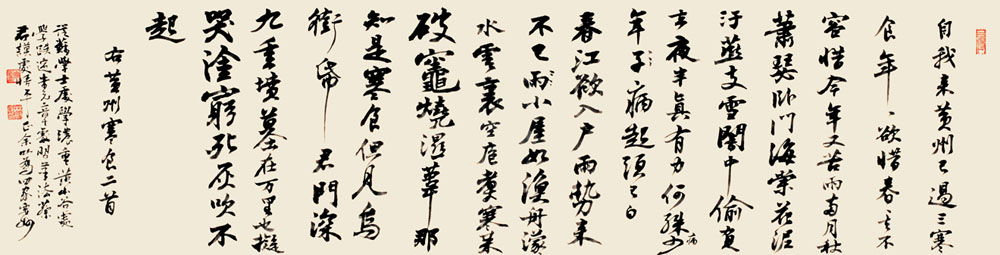 自我来黄州已過三寒
食年〻欲惜春〻不
容惜今年又苦雨兩月秋
蕭瑟卧聞海棠花泥
汙燕支雪闇中偷負
去夜半真有力何殊少病
年子病起頭已白
春江欲入户雨勢来
不已雨小屋如漁舟濛
水雲裏空庖煮寒菜
破竈燒濕葦那
知是寒食但見烏
銜帋君門深
九重墳墓在万里也擬
哭塗窮死灰吹不
起
右黄州寒食二首